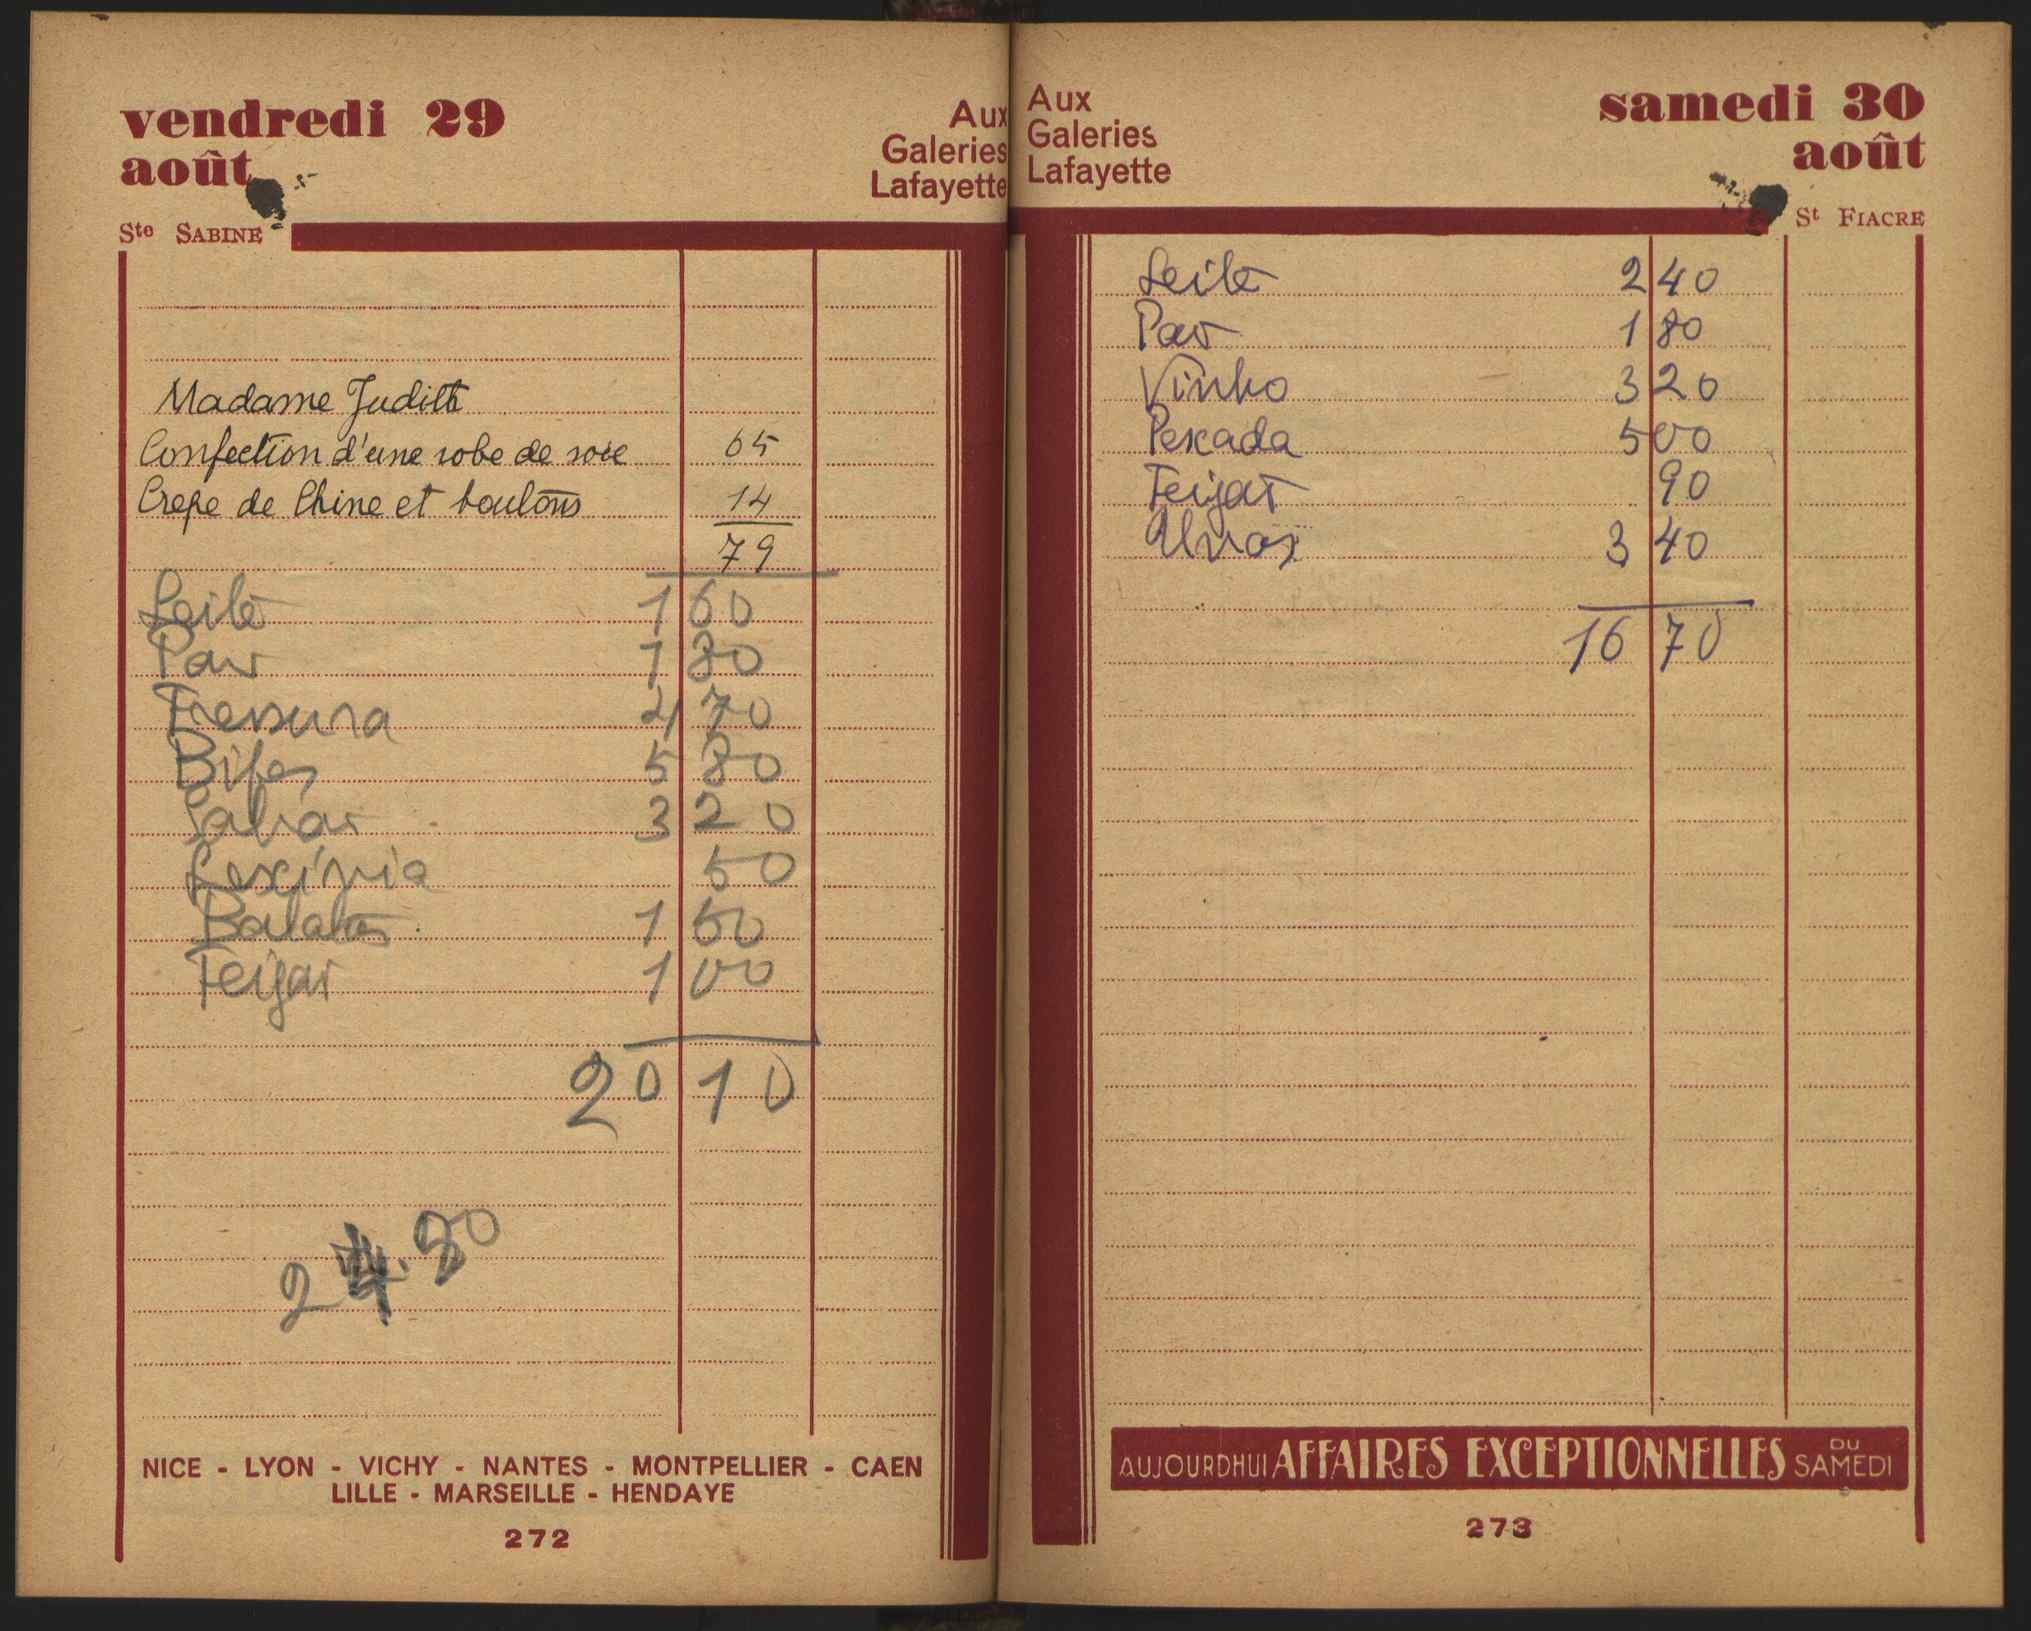 vendredi 29
août
Ste SABINE
Aux
Galeries
Lafayette
Madame Judith
Confection d'une robe de soie 65
Crepe de Chine et boutons 14
79
Leite 1 60
Pao 1 80
Fressura 4 70
Bifes 5 80
3 20
Lexívia 50
Batatas 1 50
Feijao 1 00
20 10
24.80
NICE - LYON - VICHY - NANTES - MONTPELLIER - CAEN
LILLE - MARSEILLE - HENDAYE
272
Aux
Galeries
Lafayette
samedi 30
août
St FIACRE
Leite 2 40
Pao 1 80
Vinho 3 20
Pescada 5 00
Feijao 90
Uvas 3 40
16 70
AUJOURDHUI AFFAIRES EXCEPTIONNELLES DU SAMEDI
273